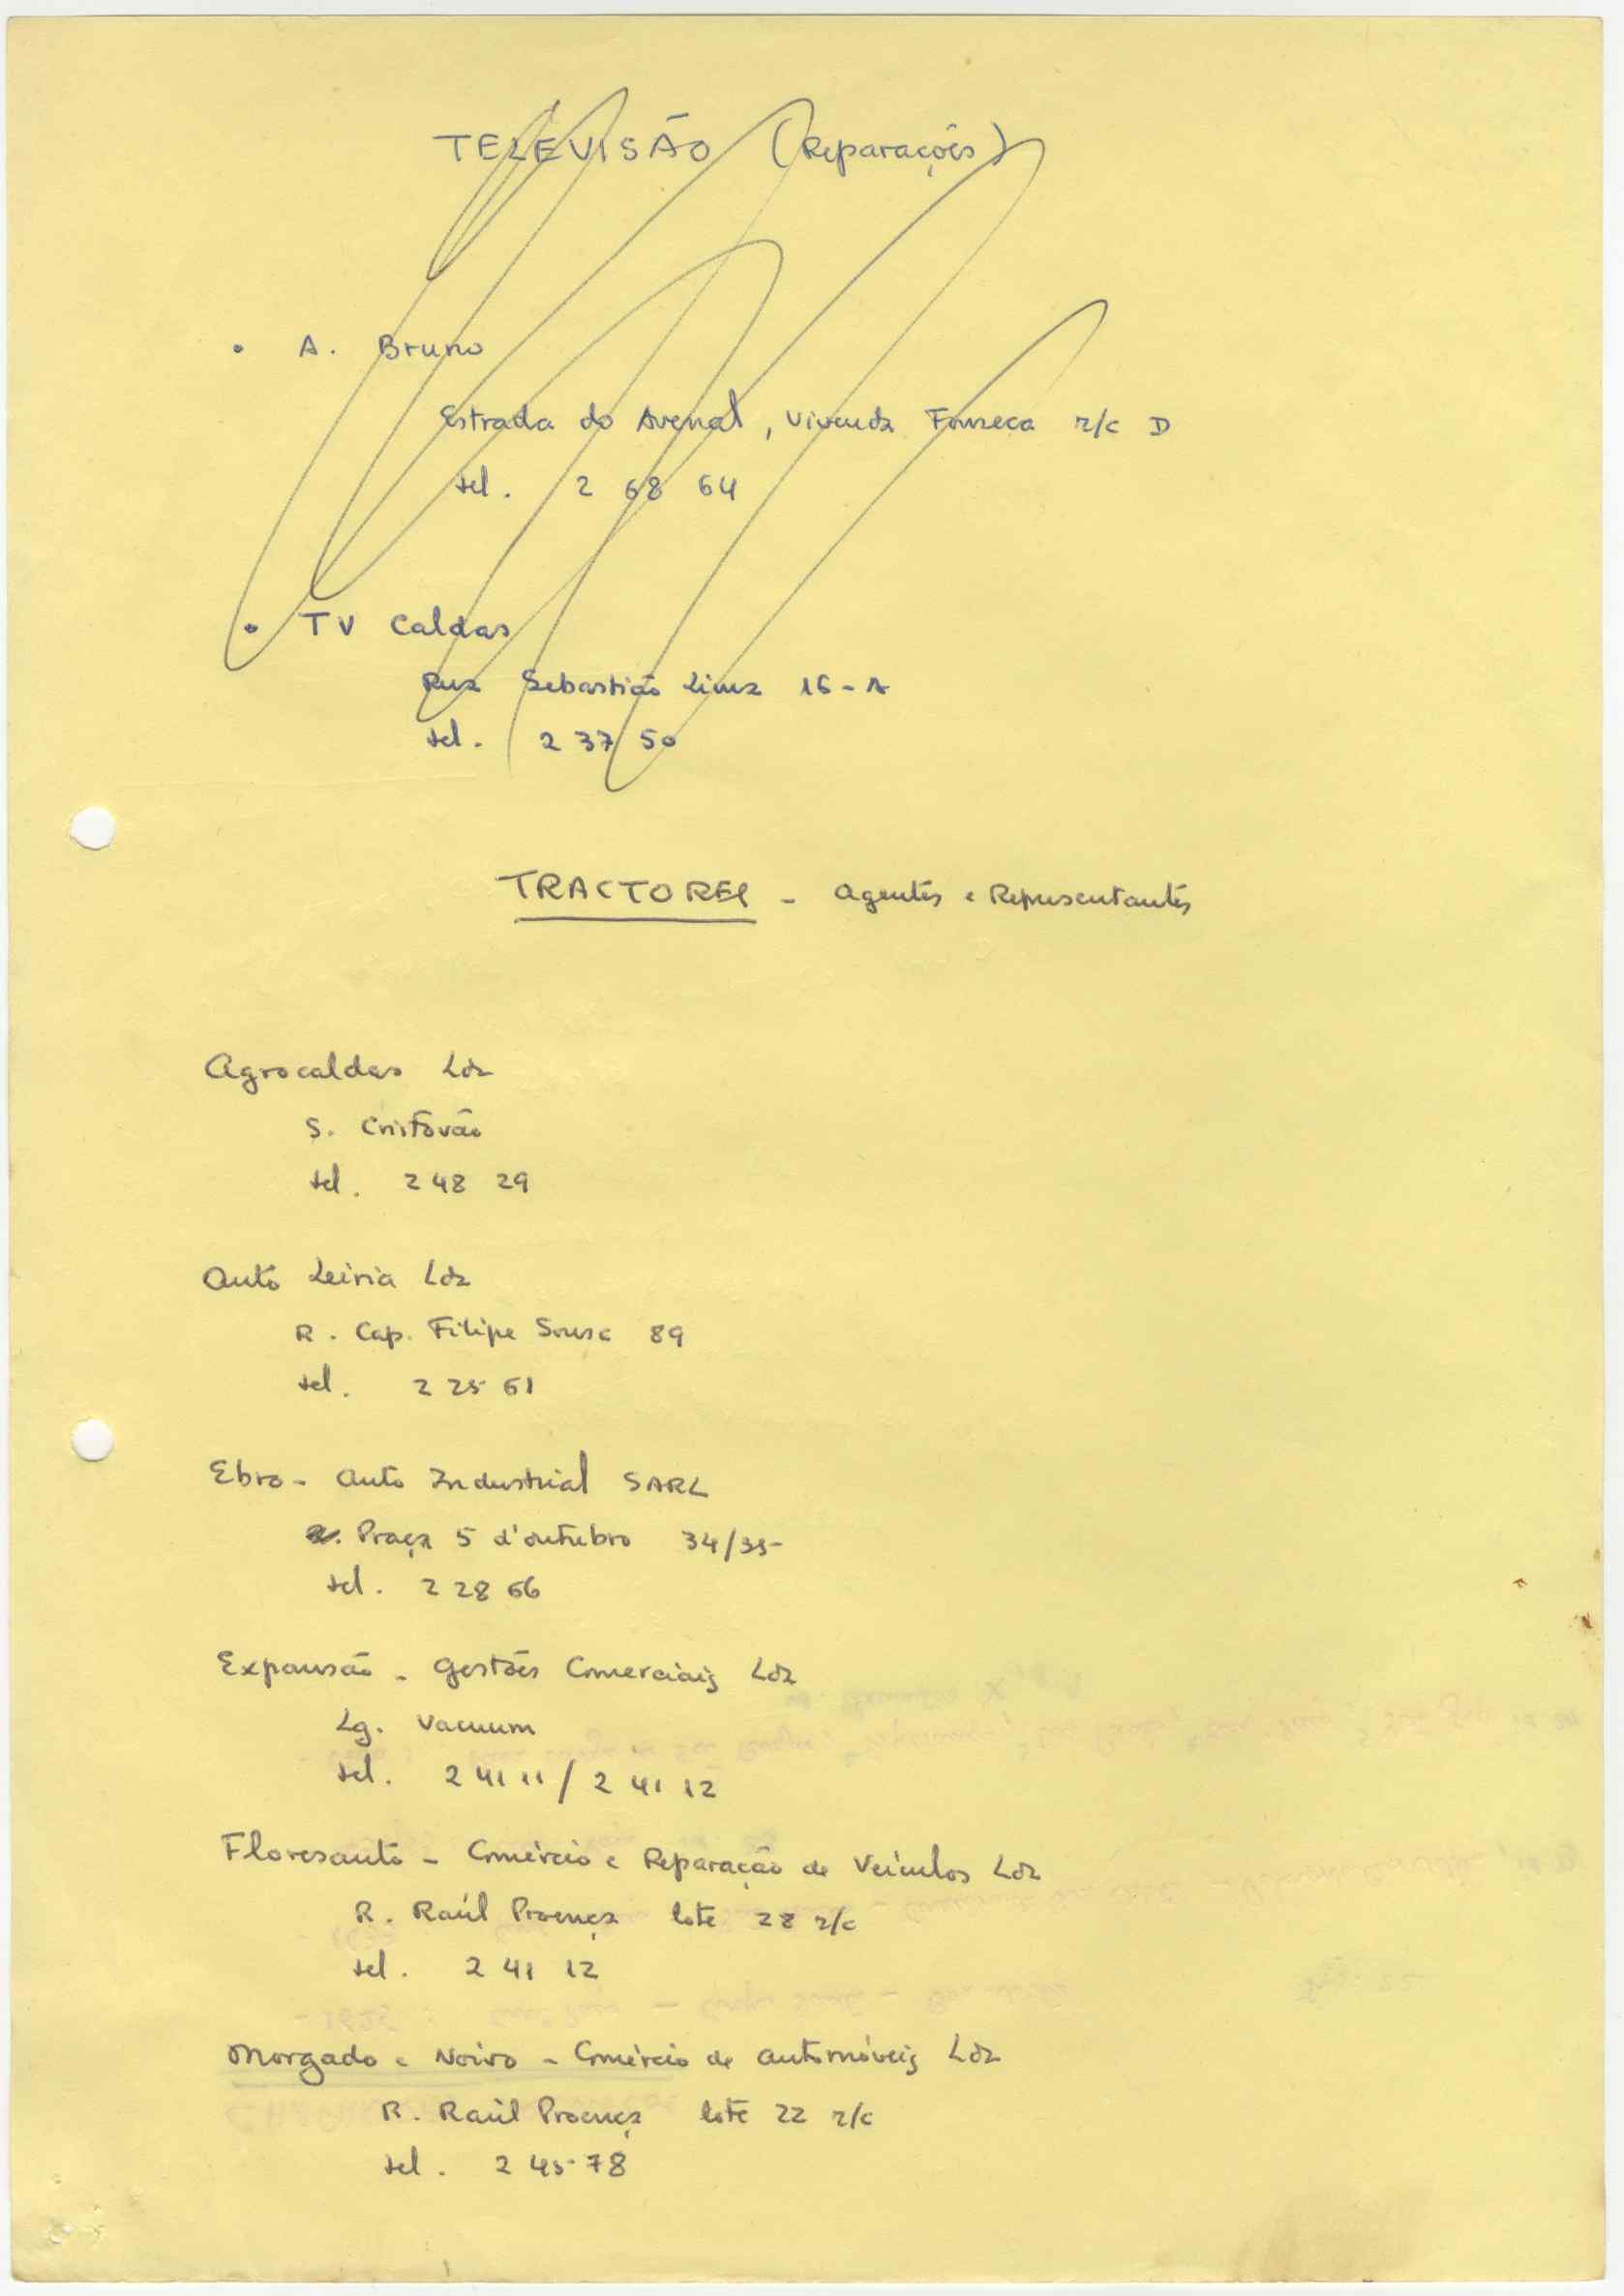 TELEVISÃO (Reparações)
• A. Bruno
Estrada do Avenal, Vivenda Fonseca r/c D
tel. 2 68 64
• TV Caldas
Rua Sebastião Lima 16-A
tel. 2 37 50
TRACTORES - Agentes e Representantes
Agrocaldas Lda
S. Cristovão
tel. 2 48 29
Auto Leiria Lda
R. Cap. Filipe Sousa 89
tel. 2 25 61
Ebro - Auto Industrial SARL
Praça 5 d'outubro 34/35
tel. 2 28 66
Expansão - Gestões Comerciais Lda
Lg. Vacuum
tel. 2 41 11 / 2 41 12
Floresauto - Comércio e Reparação de Veículos Lda
R. Raúl Proença lote 28 r/c
tel. 2 41 12
Morgado e Noivo - Comércio de Automóveis Lda
R. Raúl Proença lote 22 r/c
tel. 2 45 78